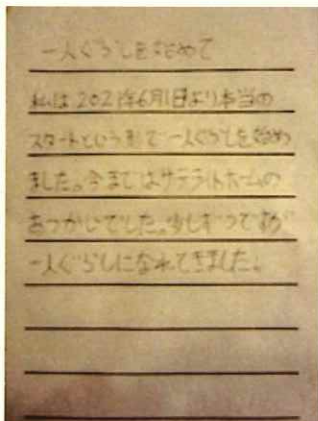 一人ぐらしを始めて
私は2021年6月1日より本当の
スタートという形で一人ぐらしを始め
ました。今まではサテライトホームの
あつかいでした。少しずつですが
一人ぐらしになれてきました。